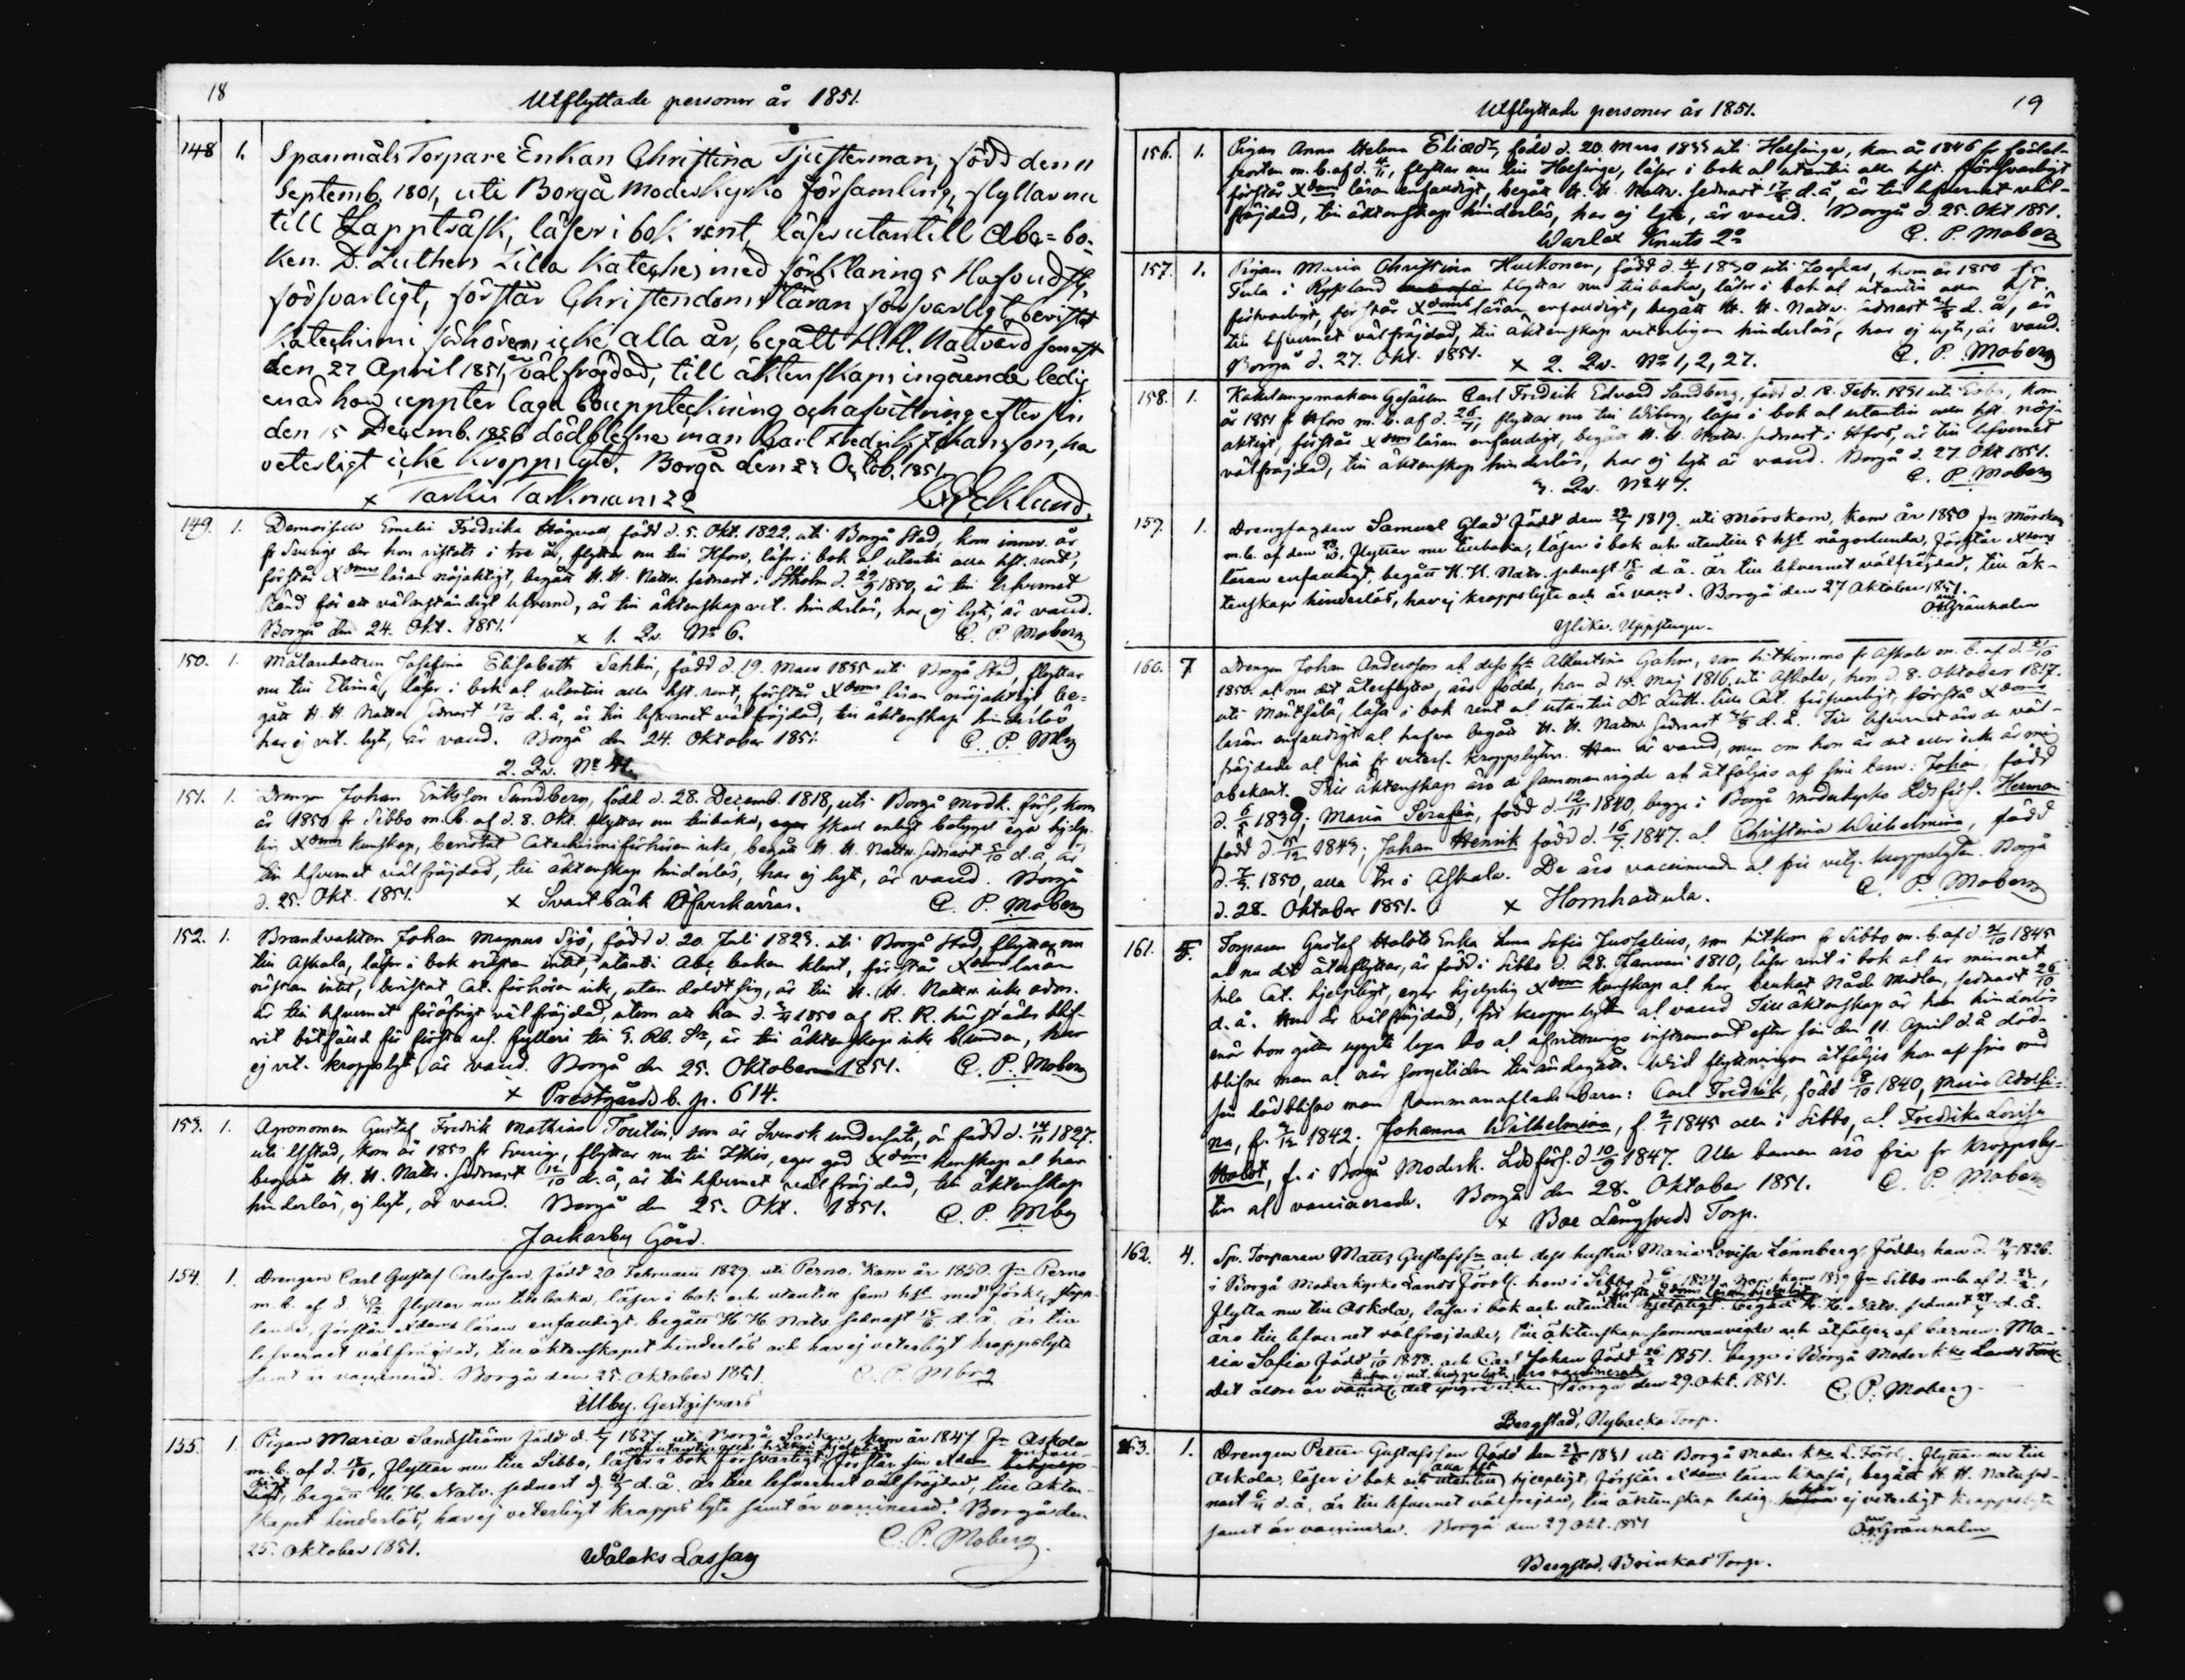 18
Utflyttade personer år 1851.
148 1. Spanmåls Torpare Enkan Christina Tjusterman, född den 11
Septemb. 1801, uti Borgå Moderkyrko församling, flyttar nu
till Lappträsk, läser i bok rent, läser utantill Abc=bo-
ken. D. Luthers Lilla Kateches med förklaring 5 Hufvudst.
försvarligt, förstår Christendoms läran försvarligt, bevistat
Katechismi förhören icke alla år, begått H. H. Nattvard senast
den 27 April 1851, är välfräjdad, till äktenskaps ingående ledig
enär hon uppter laga bouppteckning och afvittring efter sin
den 15 Decemb. 1836 dödblefne man Carl Fredrik Johansson, har
veterligt icke kroppslyte. Borgå den 23 Octob. 1851.
x Tarkis Tarkmans 2
Eklund.
149. 1. Demoiselle Emelie Fredrika född d. 5. Okt. 1822. uti Borgå Stad, kom innev. år
fr Sverige der hon vistats i tre år, flyttar nu till Hfors, läser i bok o. utantill alla hst. rent,
förstår Xdoms läran nöjaktigt, begått H. H. Nattv. sednast i Stholm d. 29/9 1850, är till lefvernet
känd för ett välanständigt lefverne, är till äktenskap vet. hinderlös, har ej lyte, är vaccd.
Borgå den 24. Okt. 1851. x 1. Qv. No 6. C. P. Moberg
150. 1. Målaredottren Josefina Elisabeth Sahlin, född d. 19. Mars 1835 uti Borgå Stad, flyttar
nu till Elimä, läser i bok o. utantill alla hst. rent, förstår Xdoms läran nöjaktigt, be-
gått H. H. Nattv. sednast 12/10 d. å, är till lefvernet välfräjdad, till äktenskap hinderlös
har ej vet. lyte, är vaccd. Borgå den 24. Oktober 1851. C. P. Mbg
2. Qv. No 41.
151. 1. Drengen Johan Eriksson Sundberg, född d. 28. Decemb. 1818, uti Borgå modk. förs, kom
år 1850 fr Sibbo m. b. af d. 8. Okt. flyttar nu tillbaka, skall enligt betyget ega hjelp-
lig Xdoms kunskap, bevistat Catechismiförhören icke, begått H. H. Nattv. sednast 5/10 d. å, är
till lefvernet välfräjdad, till äktenskap hinderlös, har ej lyte, är vaccd. Borgå
d. 25. Okt. 1851. x Svartbäck Öfverkärras. C. P. Moberg
152. 1. Brandvakten Johan Magnus Sjö, född d. 20. Juli 1823. uti Borgå Stad, flyttar nu
till Askola, läser i bok nästan intet, utantill Abc boken klent, förstår Xdoms läran
nästan intet, bevistat Cat. förhören icke, utan doldt sig, är till H. H. Nattv. icke adm.
är till lefvernet föröfrigt välfräjdad, utom att han d. 1850 af R. R. härstädes blif-
vit bötfälld för första res. fylleri till 3. Rb. Sr, är till äktenskap icke bunden, har
ej vet. kroppslyte, är vaccd. Borgå den 25. Oktober 1851. C. P. Moberg
x Prestgårds b. p. 614.
153. 1. Agronomen Gustaf Fredrik Mathias Toutin, som är Svensk undersåte, är född d. 14/11 1827.
uti Ystad, kom år 1850 fr Sverige, flyttar nu till, eger god Xdoms kunskap o. har
begått H. H. Nattv. sednast 12/10 d. å, är till lefvernet välfräjdad, till äktenskap
hinderlös, ej lyte, är vaccd. Borgå den 25. Okt. 1851. C. P. Mbg
Jackarby Gård.
154. 1. Drengen Carl Gustaf Carlsson, född 20 Februarii 1829. uti Perno. Kom år 1850. Fr Perno
m. b. af d. flyttar nu tillbaka, läser i bok och utantill fem hst. med försk.
förstår Xdoms läran enfaldigt, begått H. H. Natv. sednast 15/6 d. å. är till
lefvernet välfräjdad, till äktenskapet hinderlös och har ej veterligt kroppslyte
samt är vaccinerad. Borgå den 25. Oktober 1851. C. P. Mbrg
Illby. Gestgifvars
155. 1. Pigan Maria Sandström född d. 1827. uti Borgå Socken, kom år 1847. Fr Askola
m. b. af d. 17/10, flyttar nu till Sibbo, läser i bok försvarligt, förstår sin Xdom
begått H. H. Natv. sednast d. d. å. är till lefvernet välfräjdad, till äkten-
skapet hinderlös, har ej veterligt kropps lyte samt är vaccinerad. Borgå den
25. Oktober 1851. C. P. Moberg.
Wålaks Lassas
Utflyttade personer år 1851.
19
156. 1. Pigan Anna Helena Eliædr, född d. 20. Mars 1833 uti Helsinge, kom år 1846 fr
m. b. af d. 4/11, flyttar nu till Helsinge, läser i bok o. utantill alla hst. försvarligt
förstår Xdoms läran enfaldigt, begått H. H. Nattv. sednast d. å, är till lefvernet väl-
fräjdad, till äktenskap hinderlös, har ej lyte, är vaccd. Borgå d. 25. Okt 1851.
Warlax Knuts 2o C. P. Moberg
157. 1. Pigan Maria Christina Huckonen, född d. 4/ 1830 uti, kom år 1850 fr
Tula i Ryssland flyttar nu tillbaka, läser i bok o. utantill alla hst.
försvarligt, förstår Xdoms läran enfaldigt, begått H. H. Nattv. sednast d. å, är
till lefvernet välfräjdad, till äktenskap veterligen hinderlös, har ej lyte, är vaccd.
Borgå d. 27. Okt. 1851. x 2. Qv. No 1, 2, 27. C. P. Moberg
158. 1. Kakelugnsmakare Gesällen Carl Fredrik Edvard Sandberg, född d. 18. Febr. 1831 uti, kom
år 1851 fr Hfors m. b. af d. 26/, flyttar nu till Wiborg, läser i bok o. utantill alla hst. nöj-
aktigt, förstår Xdoms läran enfaldigt, begått H. H. Nattv. sednast i Hfors, är till lefvernet
välfräjdad, till äktenskap hinderlös, har ej lyte är vaccd. Borgå d. 27. Okt 1851.
3. Qv. No 47. C. P. Moberg
159. 1. Drengsagden Samuel Glad född den 22/ 1819. uti Mörskom, kom år 1850 fr Mörskom
m. b. af den, flyttar nu tillbaka, läser i bok och utantill 5 hst någorlunda, förstår Xdoms
läran enfaldigt, begått H. H. Natv. sednast 15/6 d. å. är till lefvernet välfräjdad, till äk-
tenskap hinderlös, har ej kroppslyte och är vaccd. Borgå den 27 Oktober 1851.
Gränholm
Ylike. Uppstugu.
160. 7 Drengen Johan Andersson o. dess hu Albertina Gahm, som hitkommo fr Askola m. b. af d. 21/10
1850. o. nu dit återflytta, äro födde, han d. 15. Maj 1816. uti Askola, hon d. 8. Oktober 1817.
uti Mäntsälä, läsa i bok rent o. utantill Dr Luth. lilla Cat. försvarligt, förstå Xdoms
läran enfaldigt o. hafva begått H. H. Nattv. sednast d. å. Till lefvernet äro de väl-
fräjdade o. fria fr veterl. kroppslyten. Han är vaccd, men om hon är det eller icke är mig
obekant. Till äktenskap äro de sammanvigde och åtföljas af sine barn: Johan, född
d. 1839; Maria Serafia, född d. 12/11 1840, begge i Borgå Moderkyrko Lds förs. Herman
född d. 15/12 1843; Johan Henrik född d. 16/7 1847. o. Christina Wilhelmina, född
d. 1850, alla tre i Askola. De äro vaccinerade o. fri vetl. kroppslyten. Borgå
d. 28. Oktober 1851. x Hornhattula. C. P. Moberg
161. 5. Torparen Gustaf Holots Enka Lena Sofia Jusselius, som hitkom fr Sibbo m. b. af d. 21/10 1845
o. nu dit återflyttar, är född i Sibbo d. 28. Januari 1810, läser rent i bok o. ur minnet
hela Cat. hjelpligt, eger hjelplig Xdoms kunskap o. har brukat Nåde Medlen sednast 26/10
d. å. Hon är välfräjdad, fri kroppslyten o. vaccd Till äktenskap är hon hinderlös
enär hon gitter uppte laga bo o. afvittrings instrument efter sin den 11. April d. å död-
blifne man o. när sorgetiden till ändagått. Wid flyttningen åtföljes hon af sine med
sin dödblifne man sammanaflade barn: Carl Fredrik, född 8/10 1840, Maria Adolfi-
na, f. 1842. Johanna Wilhelmina, f. 2/1 1845 alla i Sibbo, o. Fredrika Lovisa
Holot, f. i Borgå Moderk. Lds förs. d. 10/9 1847. Alla barnen äro fria fr kroppsly-
ten o. vaccinerade. Borgå den 28. Oktober 1851. C. P. Moberg
x Boe Långsveds Torp.
162. 4. Sp. Torparen Matts Gustafsson och dess hustru Maria Lovisa Lönnberg, föddes han d. 1826.
i Borgå Moderkyrko Lands Förs. hon i Sibbo d. 6/6 1827. kom 1850 Fr Sibbo m. b. af d.,
flytta nu till Askola, läsa i bok och utantill hjelpligt, begått H. H. Natv. sednast d. å.
äro till lefvernet välfräjdade, till äktenskap sammanvigde och åtföljes af barnen. Ma-
ria Sofia född 1/10 1848. och Carl Johan född 26/2 1851. begge i Borgå Moder kko Lands Förs.
det äldre är vaccd. det yngre icke. Borgå den 29. Okt. 1851. C. P. Moberg.
Bergstad, Nybacka Torp.
163. 1. Drengen Petter Gustafsson född den 1831 uti Borgå Moder kko L. Förs. flyttar nu till
Askola, läser i bok och utantill alla hst hjelpligt, förstår Xdoms läran likaså, begått H. H. Natv. sed-
nast d. å, är till lefvernet välfrejdad, till äktenskap ledig, har ej veterligt kroppslyte
samt är vaccinerad. Borgå den 29 Okt. 1851 Gränholm
Bergstad, Brinkas Torp.